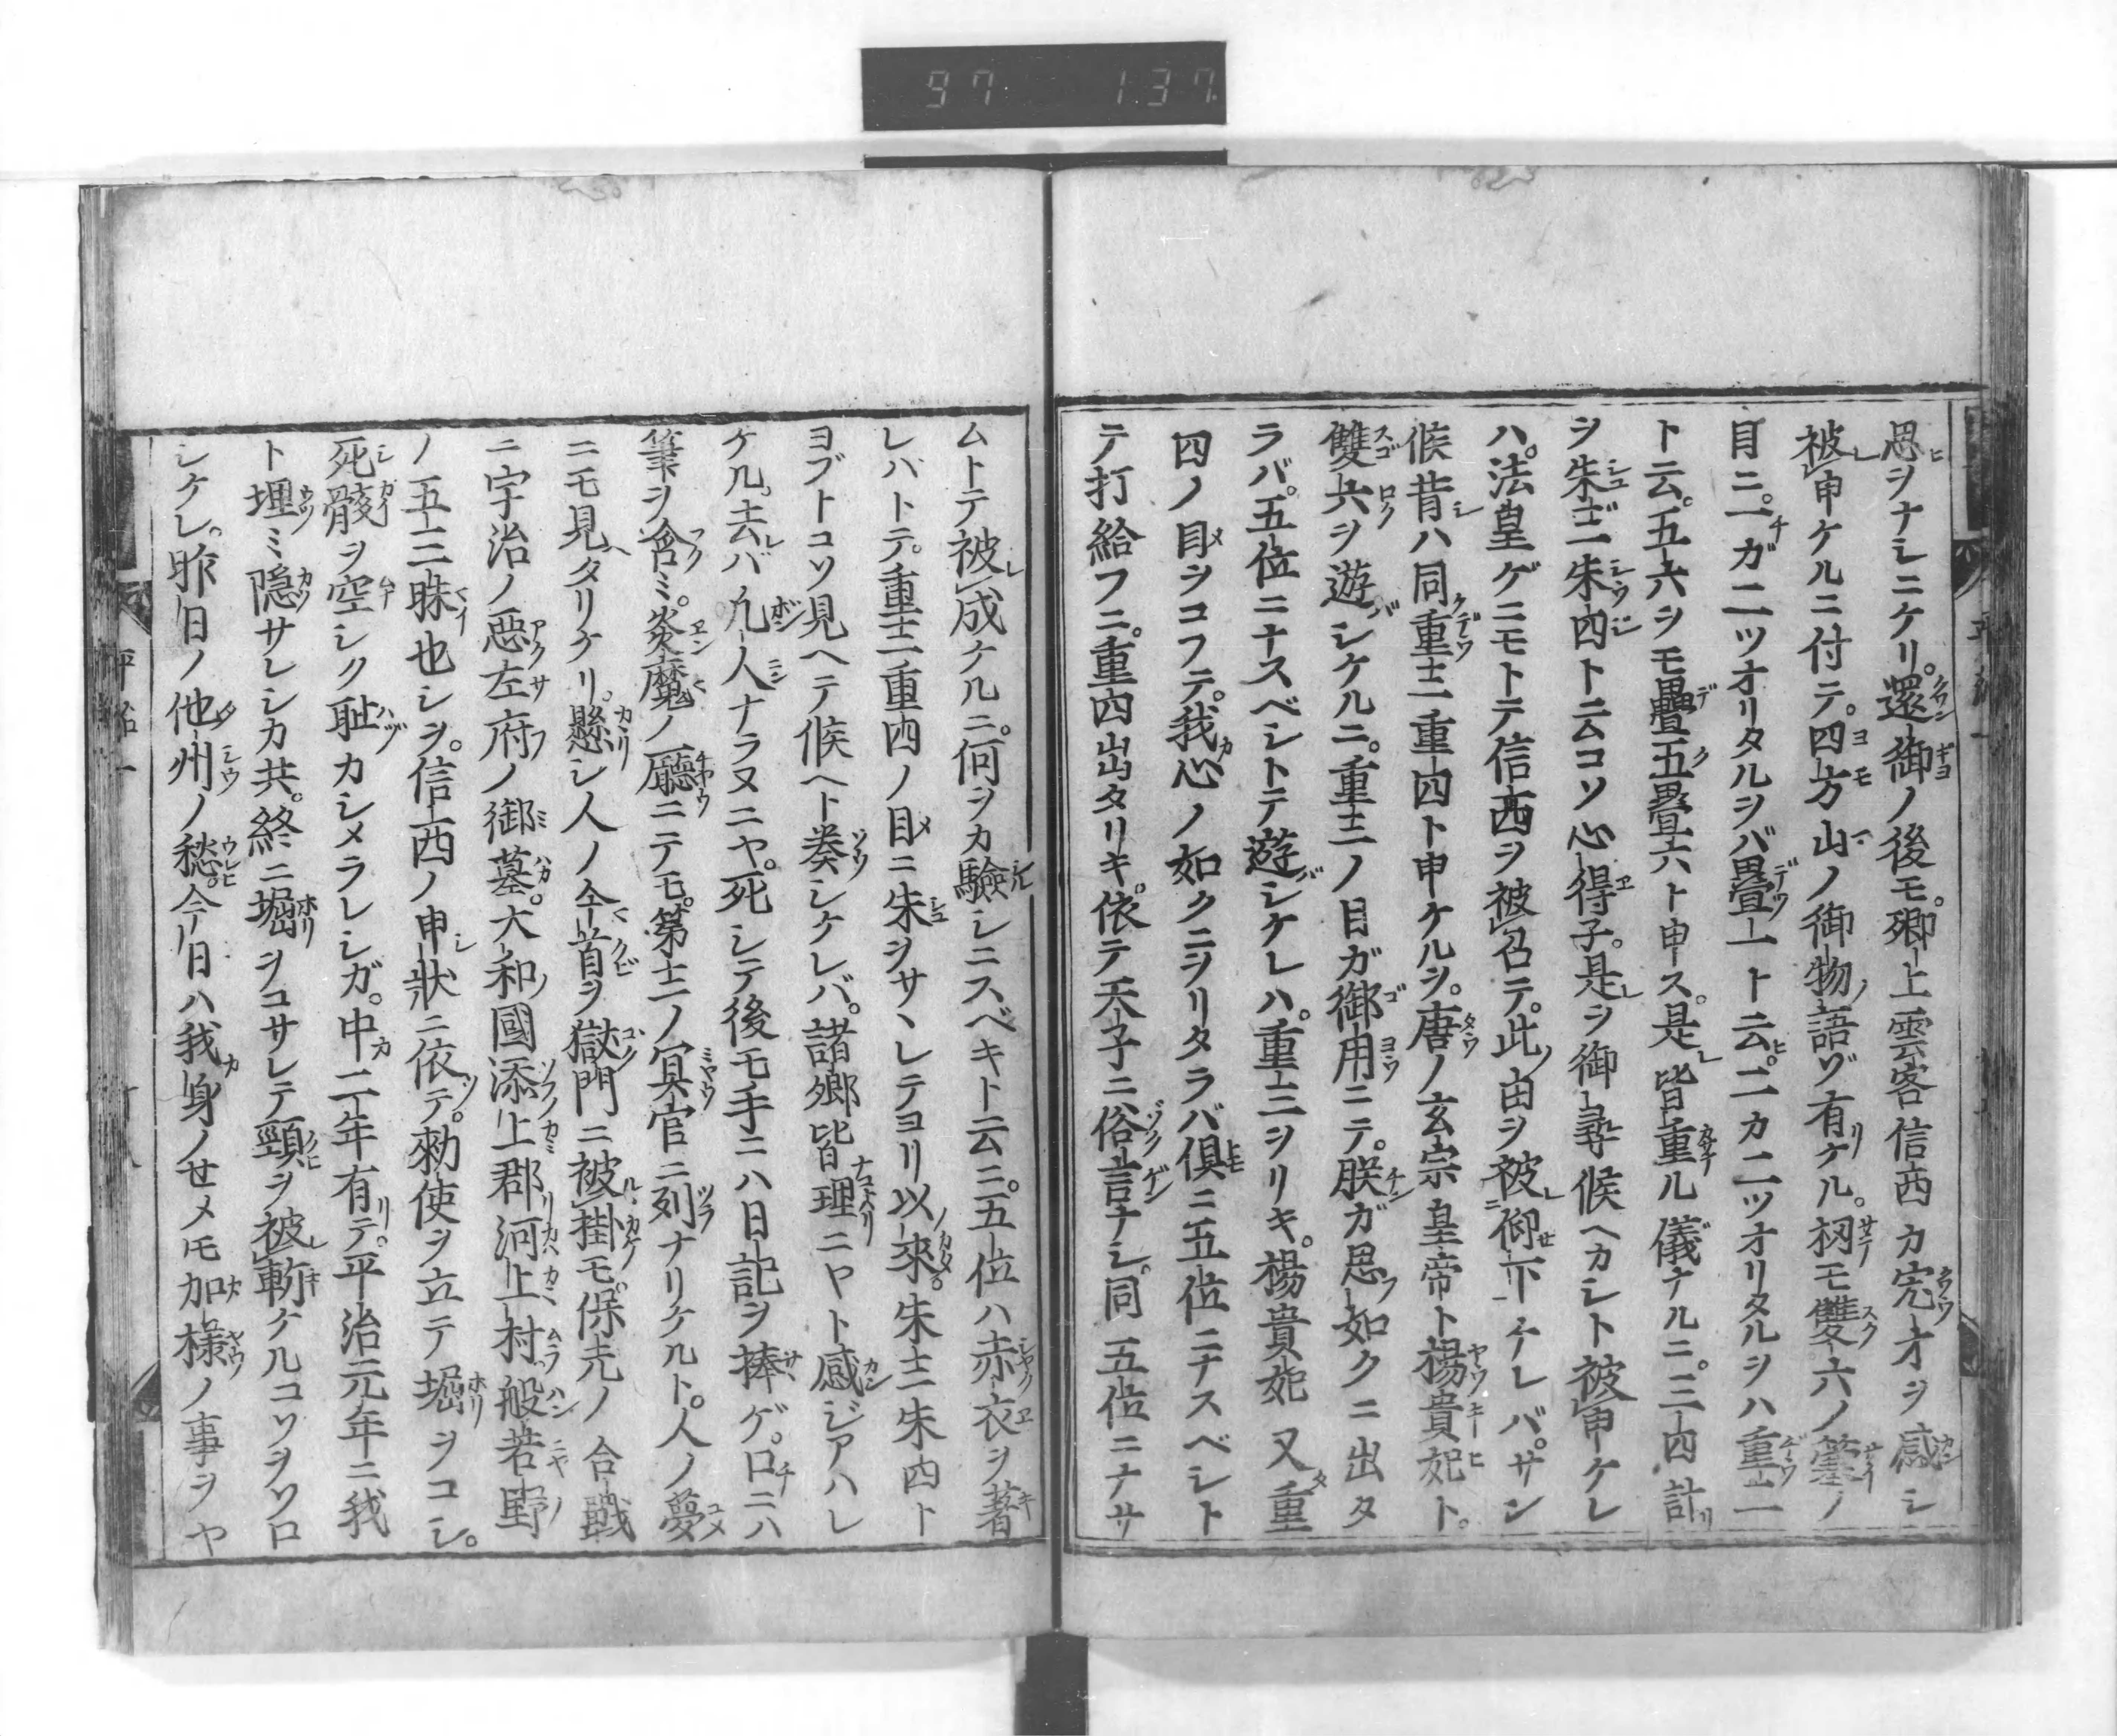 97 137
思ヲナシニケリ。還御ノ後モ。卿上雲客信西カ宏才ヲ感シ
被申ケルニ付テ。四方山ノ御物語ゾ有ケル。扨モ雙六ノ簺ノ
目ニ。一ガ二ツオリタルヲバ畳一ト云。二カ二ツオリタルヲハ重二
ト云。五六ヲモ疊五畳六ト申ス。是皆重ル儀ナルニ。三四計
ヲ朱三朱四ト云コソ心得子。是ヲ御尋候ヘカシト被申ケレ
ハ。法皇ゲニモトテ信西ヲ被召テ。此由ヲ被仰下ケレバ。サン
候昔ハ同重三重四ト申ケルヲ。唐ノ玄宗皇帝ト楊貴妃ト。
雙六ヲ遊シケルニ。重三ノ目ガ御用ニテ。朕ガ思如クニ出タ
ラバ。五位ニナスベシトテ遊シケレハ。重三ヲリキ。楊貴妃又重
四ノ目ヲコフテ。我心ノ如クニヲリタラバ倶ニ五位ニナスベシト
テ打給フニ。重四出タリキ。依テ天子ニ俗言ナシ。同五位ニナサ
ムトテ被成ケルニ。何ヲカ驗シニスベキト云ニ。五位ハ赤衣ヲ著
レバトテ。重三重四ノ目ニ朱ヲサヽレテヨリ以來。朱三朱四ト
ヨブトコソ見ヘテ候ヘト奏シケレバ。諸郷皆理ニヤト感ジアハレ
ケル。去バ凡人ナラヌニヤ。死シテ後モ手ニハ日記ヲ捧ゲ。口ニハ
筆ヲ含ミ。炎魔ノ廳ニテモ。第三ノ冥官ニ列ナリケルト。人ノ夢
ニモ見タリケリ。懸シ人ノ今首ヲ獄門ニ被掛モ。保元ノ合戰
ニ宇治ノ惡左府ノ御墓。大和國添上郡河上村般若野
ノ五三昧也シヲ。信西ノ申狀ニ依テ。勅使ヲ立テ堀ヲコシ。
死骸ヲ空シク恥カシメラレシガ。中二年有テ。平治元年ニ我
ト埋ミ隠サレシカ共。終ニ堀ヲコサレテ頸ヲ被斬ケルコソヲソロ
シケレ。昨日ノ他州ノ愁。今日ハ我身ノせメ𪜈加樣ノ事ヲヤ
平治一